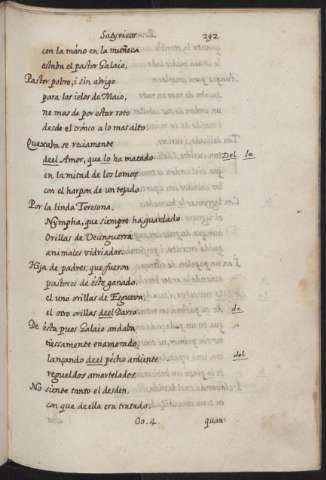 Satyricas. 292
con la mano en la muñeca
estaba el pastor Galaio,
Pastor pobre, i sin abrigo
para los ielos de Maio,
no mas de por estar roto
desde el tronco a lo mas alto.
Quexaba se reciamente
deel Amor, que lo ha matado Del la
en la mitad de los lomos
con el harpon de un tejado
Por la linda Teresona,
Nympha, que siempre ha guardado
Orillas de Vecinguerra
animales vidriados.
Hija de padres, que fueron
pastores de este ganado,
el uno orillas de Esgueva, de
el otro orillas deel Darro.
De esta pues Galaio andaba
tiessamente enamorado,
lançando deel pecho ardiente del
regueldos amartelados.
No siente tanto el desden,
con que de ella era tratado,
Oo.4 quan-